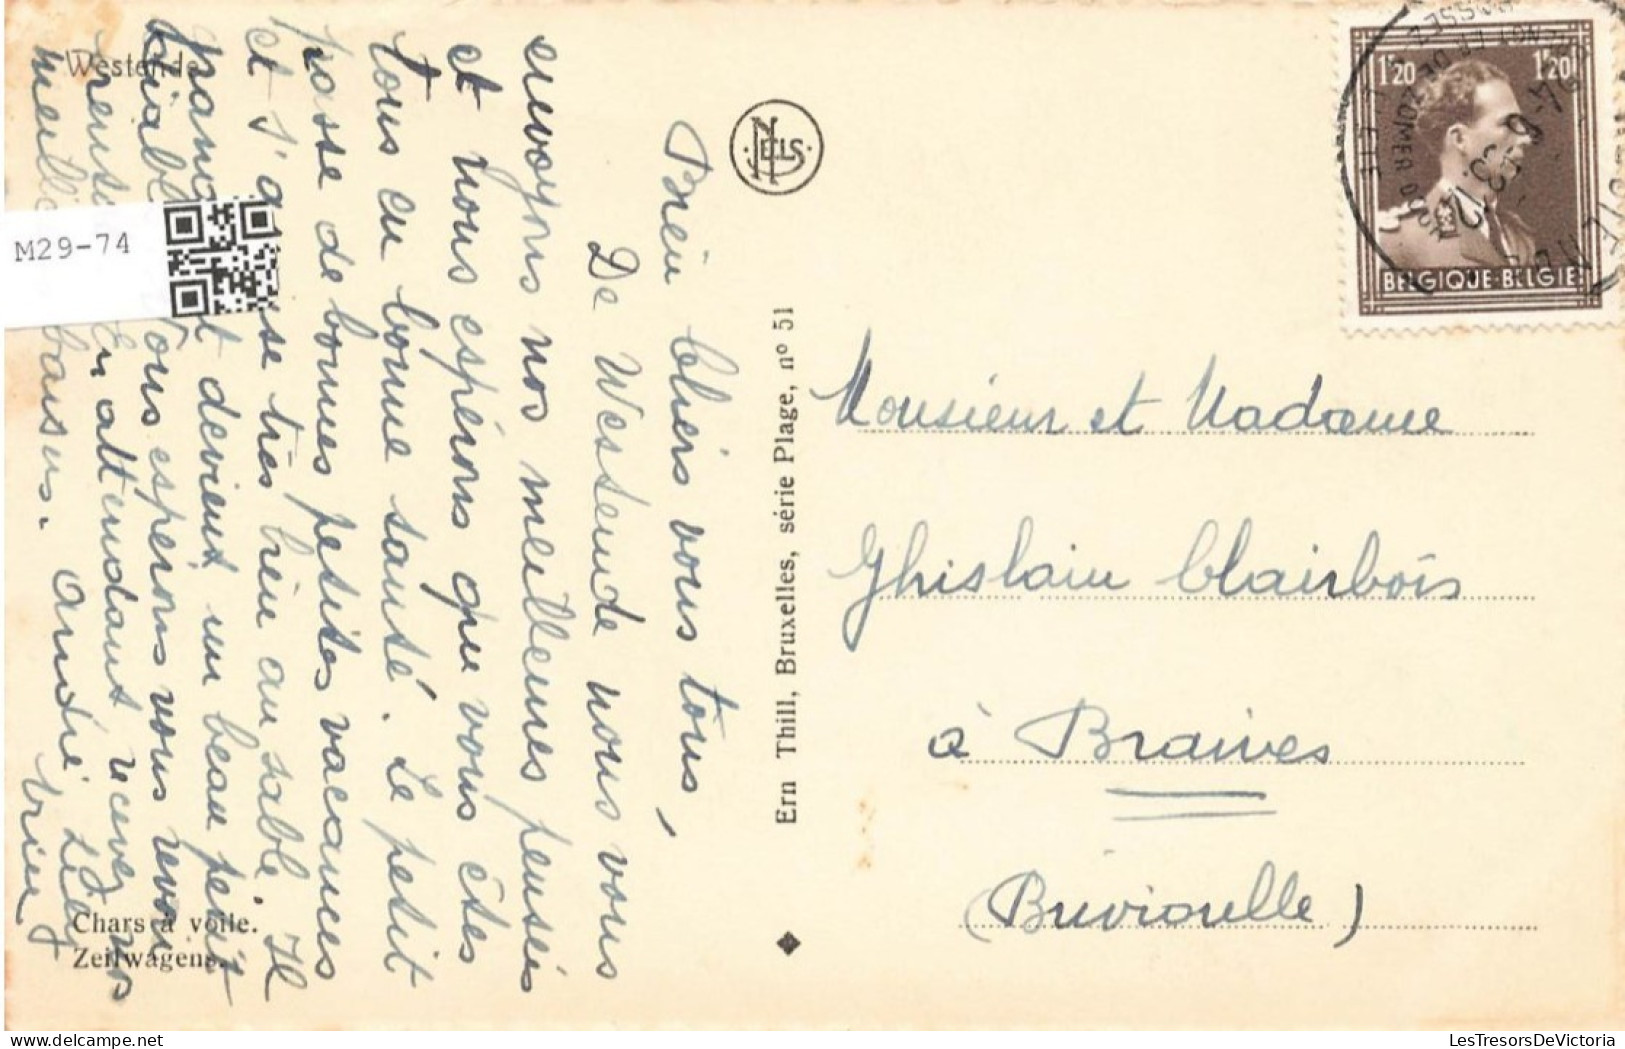 Westende
Bien chers vous tous,
De Westende nous vous
envoyons nos meilleures pensées
et nous espérons que vous êtes
tous en bonne santé. Le petit
passe de bonnes petites vacances
et s'amuse très bien au sable. Il
devient un beau petit
diable. Nous espérons vous revoir
En attendant recevez nos
meilleurs baisers. André Lucy
Chars à voile.
Zeilwagens.
M29-74
NELS
Ern Thill, Bruxelles, série Plage, nº 51
1f20 1f20
BELGIQUE-BELGIE
Monsieur et Madame
Ghislain Clairbois
à Braives
(Brivioulle)
LesTresorsDeVictoria
delcampe.net